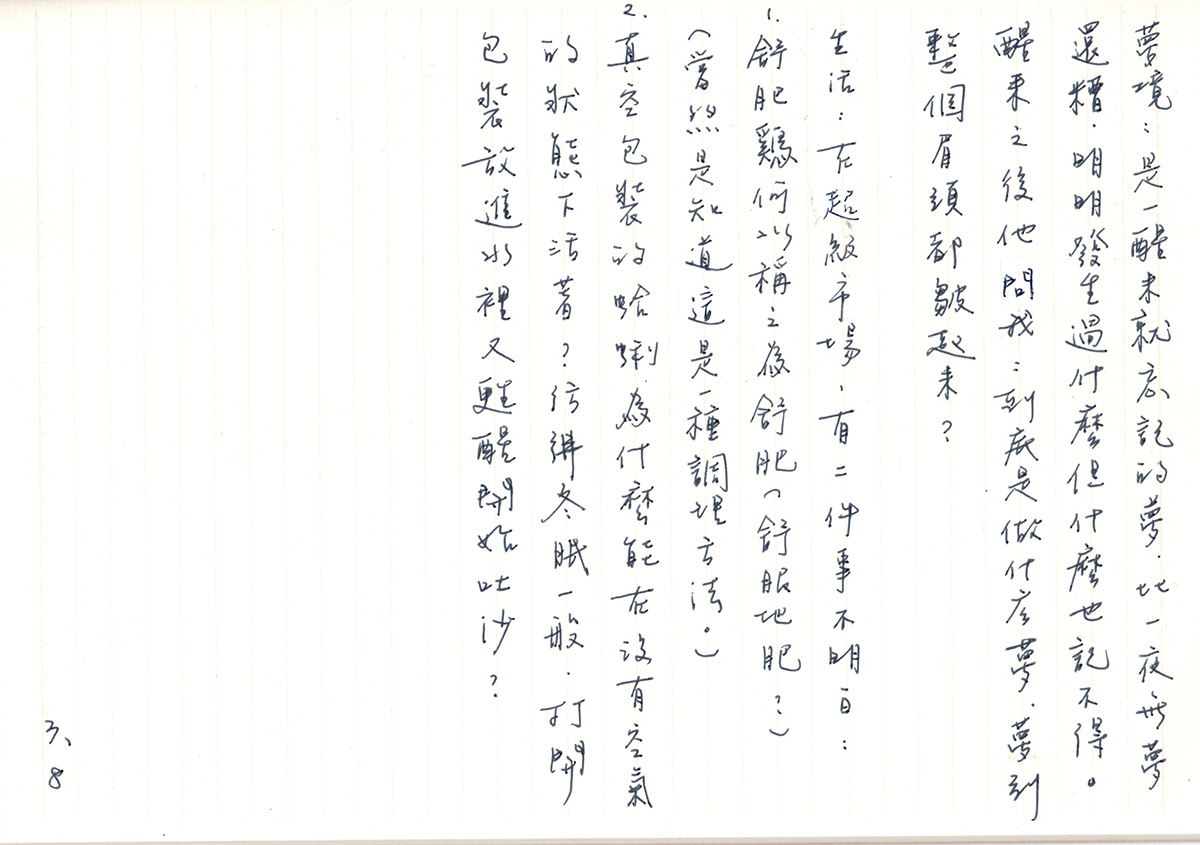 夢境：是一醒來就忘記的夢．比一夜無夢
還糟．明明發生過什麼但什麼也記不得。
醒來之後他問我：到底是做什麼夢．夢到
整個眉頭都皺起來？
生活：在超級市場，有二件事不明白：
1. 舒肥雞何以稱之為舒肥（舒服地肥？）
（當然是知道這是一種調理方法。）
2. 真空包裝的蛤蜊為什麼能在沒有空氣
的狀態下活著？彷彿冬眠一般．打開
包裝放進水裡又甦醒開始吐沙？
3、8